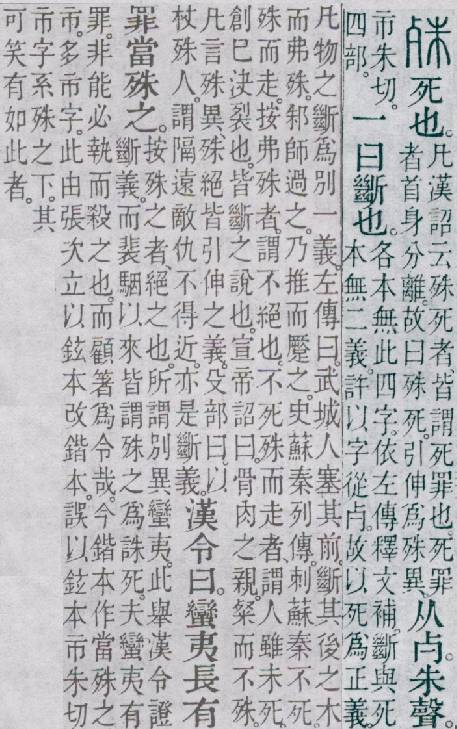 殊死也。凡漢詔云殊死者皆謂死罪也。死罪
者首身分離。故曰殊死。引伸爲殊異。从歺朱聲。
市朱切。
四部。一曰斷也。各本無此四字。依左傳釋文補。斷與死
本無二義。許以字從歺。故以死爲正義。
凡物之斷爲別一義。左傳曰。武城人塞其前。斷其後之木
而弗殊。邾師過之。乃推而蹷之。史蘇秦列傳。刺蘇秦不死
殊而走。按弗殊者、謂不絕也。不死殊而走者、謂人雖未死
創已決裂也。皆斷之說也。宣帝詔曰。骨肉之親。粲而不殊。
凡言殊異、殊絕皆引伸之義。殳部曰。以
杖殊人。謂隔遠敵仇不得近。亦是斷義。漢令曰。蠻夷長有
罪當殊之。按殊之者、絕之也。所謂別異蠻夷。此舉漢令證
斷義。而裴駰以來皆謂殊之爲誅死。夫蠻夷有
罪。非能必執而殺之也。而顧箸爲令哉。今鍇本作當殊之
市。多市字。此由張次立以鉉本改鍇本。誤以鉉本市朱切
市字系殊之下。其
可笑有如此者。